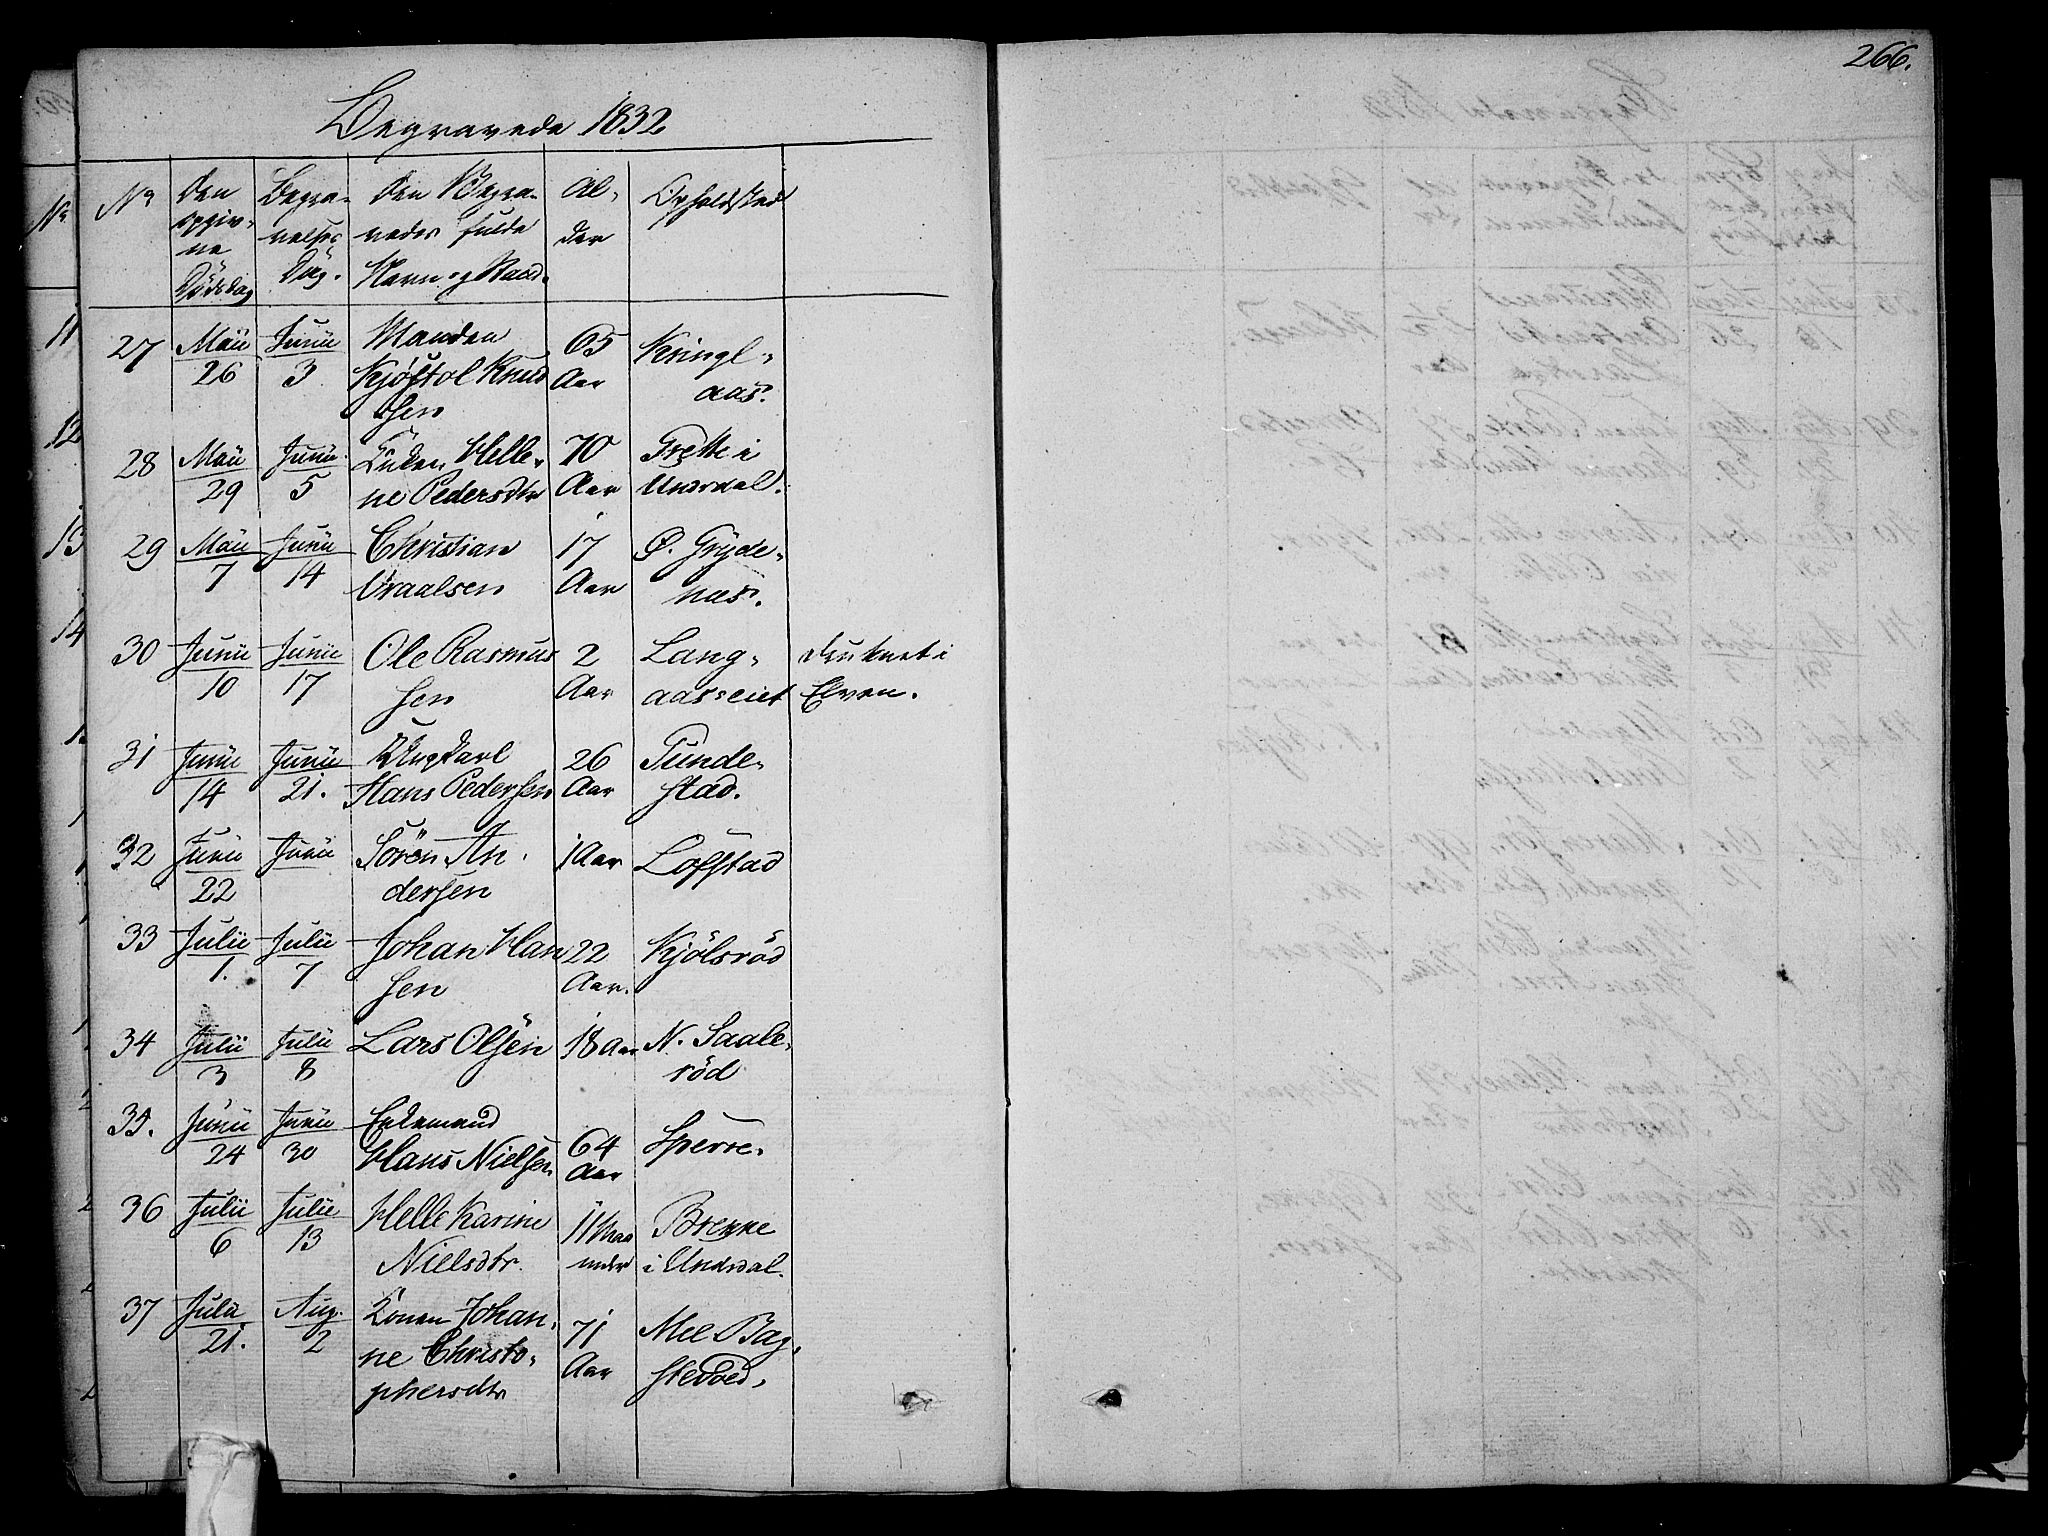 266.
Begravede 1832
No
Den opgiv- ne Dödsdag
Begra- velses Dag.
Den Begra- vedes fulde Navn og Stand.
Al- der
Opholdsted
27 Maii 26 Junii 3 Manden Kjöstol Knud sen 65 Aar Kringl- aas.
28 Maii 29 Junii 5 Enken Helle- ne Pedersdtr 70 Aar Grette i Undrdal.
29 Maii 7 Junii 14 Christian Vraalsen 17 Aar Ø. Gryde- naas.
30 Junii 10 Junii 17 Ole Rasmus sen 2 Aar Lang- aasseiet druknet i Elven.
31 Junii 14 Junii 21. Ungkarl Hans Pedersen 26 Aar Tunde- stad.
32 Junii 22 Junii Sören An- dersen 1 Aar Lofstad
33 Julii 1. Julii 7 Johan Han sen 22 Aar. Kjölsröd
34 Julii 3 Julii 8 Lars Olsen 18 Aar N. Saale- röd
35. Junii 24 Junii 30 Enkemand Hans Nielsen 64 Aar Sperre.
36 Julii 6 Julii 13 Helle Karine Nielsdtr. 11 Maa neder Brekke i Undrdal.
37 Julii 21. Aug. 2 Konen Johan- ne Christo- phersdtr 71 Aar Mel Bag- stevold.